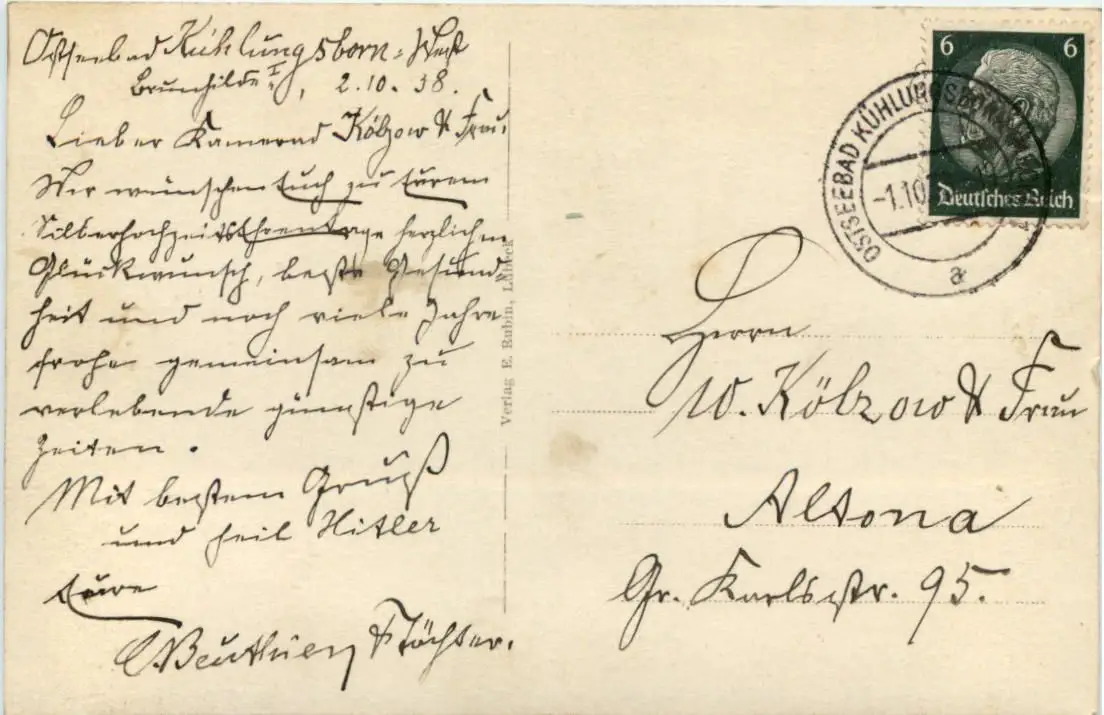 Ostseebad Kühlungsborn-West
Brunhilde I, 2.10.38.
Lieber Kamerad Kölzow & Frau!
Wir wünschen Euch zu Eurem
Silberhochzeitsehrentage herzlichen
Glückwunsch, beste Gesund
heit und noch viele Jahre
frohe gemeinsam zu
verlebende günstige
Zeiten.
Mit bestem Gruß
und heil Hitler
Eure
& Töchter.
Verlag E. Rubin, Lübeck
6 6
Deutsches Reich
OSTSEEBAD KÜHLUNGSBORN
-1.10
a
Herrn
W. Kölzow & Frau
Altona
Gr. Karlsstr. 95.